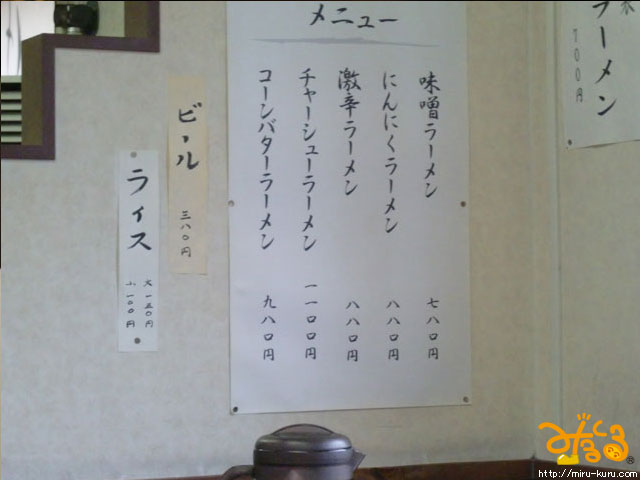 メニュー
味噌ラーメン 七八〇円
にんにくラーメン 八八〇円
激辛ラーメン 八八〇円
チャーシューラーメン 一一〇〇円
コーンバターラーメン 九八〇円
ビール 三八〇円
ライス 大一五〇円
小一〇〇円
ラーメン
700円
みるくる
®
http://miru-kuru.com/